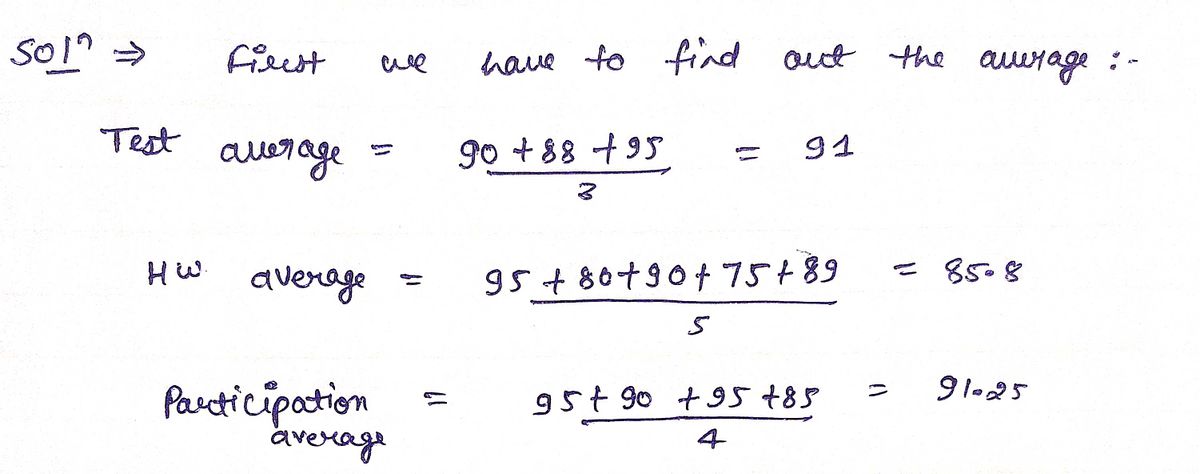 Solⁿ ⇒ First we have to find out the average :-
Test average = 90 + 88 + 95 / 3 = 91
HW average = 95 + 80 + 90 + 75 + 89 / 5 = 85.8
Participation average = 95 + 90 + 95 + 85 / 4 = 91.25